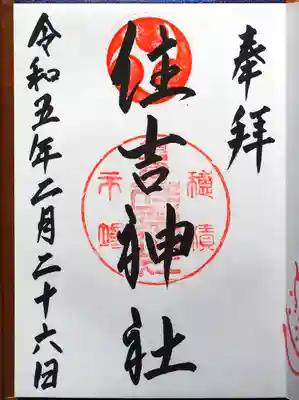 奉拝
住吉神社
穂積
令和五年二月二十六日